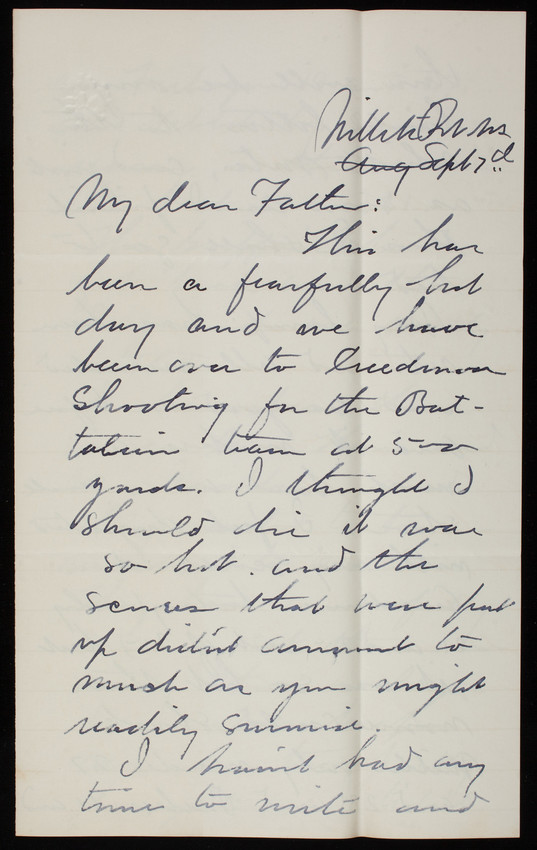 Willets Pt.
Aug Sept 7d
My dear Father:
This has
been a fearfully hot
day and we have
been over to Creedmoor
Shooting for the Bat-
talion team at 500
yards. I thought I
should die it was
so hot. and the
scores that were put
up didn't amount to
much as you might
readily surmise.
I haint had any
time to write and